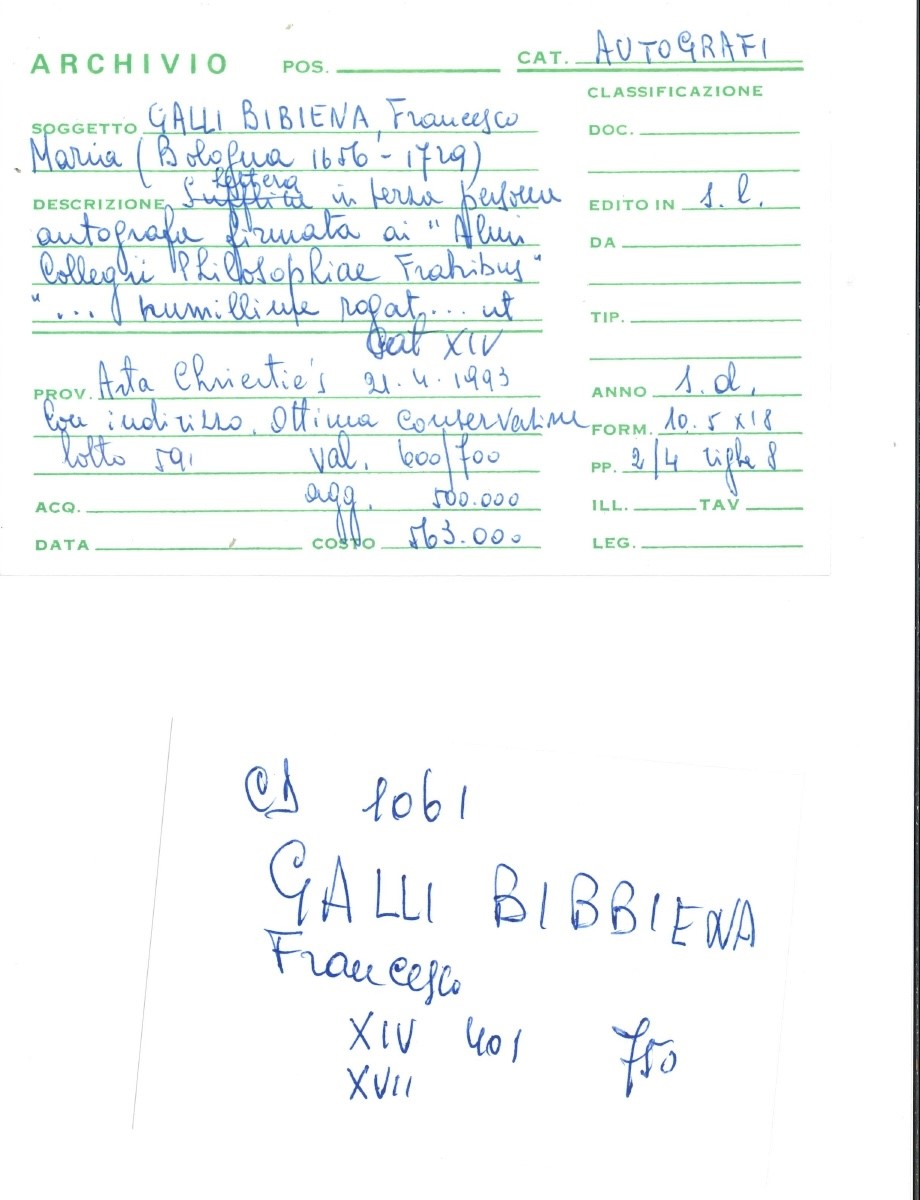 ARCHIVIO POS. CAT. AUTOGRAFI
CLASSIFICAZIONE
SOGGETTO GALLI BIBIENA, Francesco
DOC.
Maria (Bologna 1656 - 1729)
lettera
DESCRIZIONE Supplica in terza persona
EDITO IN s.l.
autografa firmata ai "Almi
DA
Collegii Philosophiae Fratribus"
"... humillime rogat... ut
TIP.
Cat XIV
PROV. Asta Christie's 21.4.1993
ANNO s.d.
Con indirizzo. Ottima conservazione
FORM. 10.5 x 18
lotto 591 val. 600/700
PP. 2/4 righe 8
agg. 500.000
ACQ.
ILL. TAV
DATA COSTO 563.000
LEG.
1061
GALLI BIBBIENA
Francesco
XIV 401 750
XVII